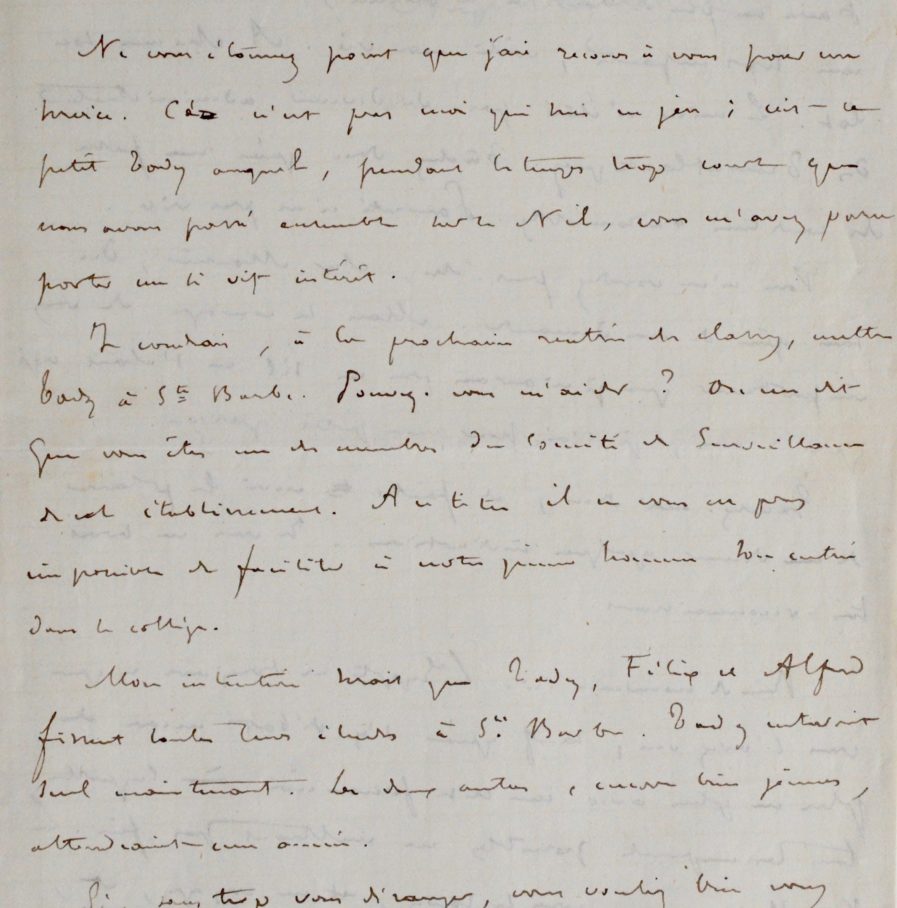 Ne vous étonnez point que j'aie recours à vous pour un
service. Ce n'est pas moi qui suis en jeu ; c'est ce
petit Tady auquel, pendant le temps trop court que
nous avons passé ensemble sur le Nil, vous m'avez paru
porter un si vif intérêt.
Je voudrais, à la prochaine rentrée des classes, mettre
Tady à Ste Barbe. Pouvez-vous m'aider ? On me dit
que vous êtes un des membres du Comité de Surveillance
de cet établissement. A ce titre il ne vous est pas
impossible de faciliter à notre jeune homme son entrée
dans le collège.
Mon intention serait que Tady, Félix et Alfred
fissent toutes leurs études à Ste Barbe. Tady entrerait
seul maintenant. Les deux autres, encore bien jeunes,
attendraient une année.
Si, sans trop vous déranger, vous vouliez bien vous